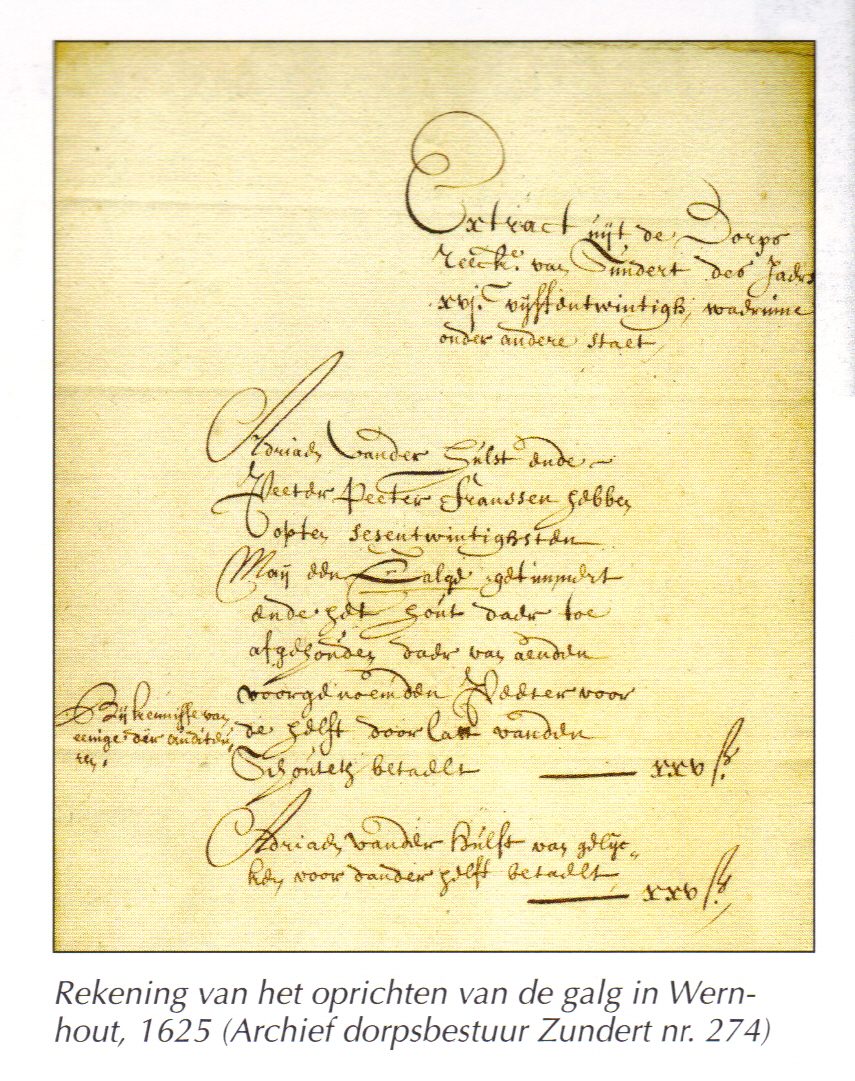 Extract uijt de Dorps
reecke. van Sundert des Jaers
xvjC. vijffentwintigh, waerinne
onder andere staet,
Adriaen vander Hulst ende
Peeter Peeter Franssen hebben
opten sesentwintighsten
Maij een Galge getimmert
ende het hout daer toe
afgehouden daer van aenden
voorgenoemden Peeter voor
de helft door last vanden
Schouteth betaelt xxv ß.
Bij kennisse van
eenige der auditeu
ren.
Adriaen vander Hulst van gelyc-
ken voor dander helft betaelt xxv ß.
Rekening van het oprichten van de galg in Wern-
hout, 1625 (Archief dorpsbestuur Zundert nr. 274)